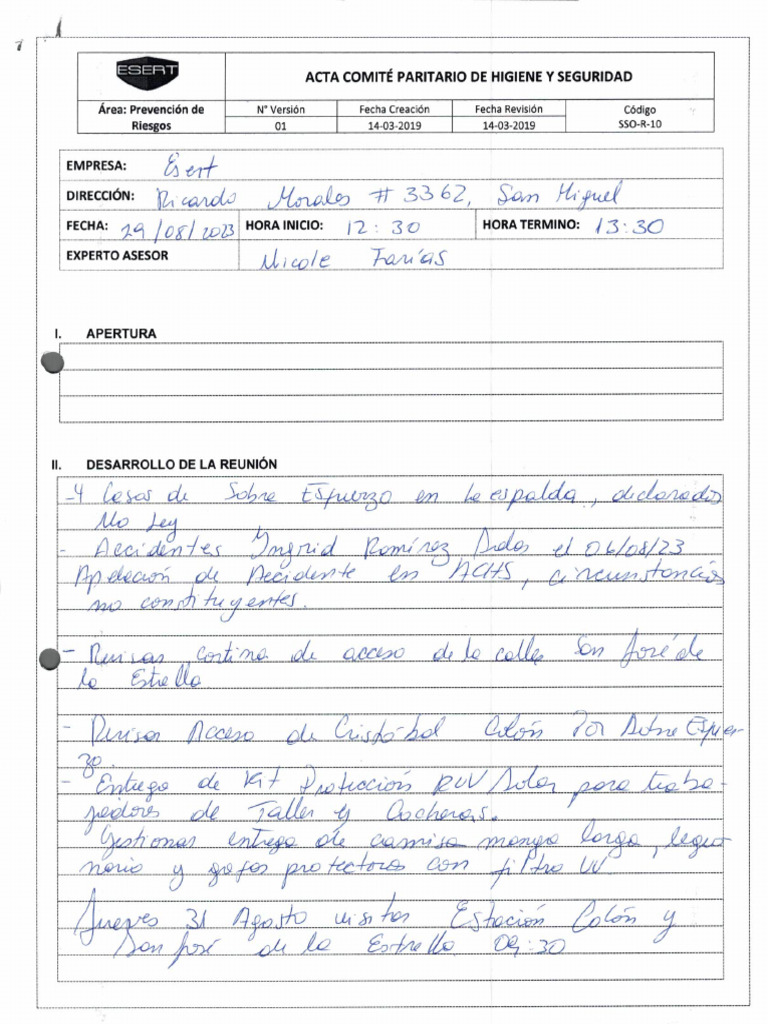 ESERT
ACTA COMITÉ PARITARIO DE HIGIENE Y SEGURIDAD
Área: Prevención de Riesgos
N° Versión
Fecha Creación
Fecha Revisión
Código
01
14-03-2019
14-03-2019
SSO-R-10
EMPRESA: Esert
DIRECCIÓN: Ricardo Morales # 3362, San Miguel
FECHA: 29/08/2023 HORA INICIO: 12:30 HORA TERMINO: 13:30
EXPERTO ASESOR Nicole Farías
I. APERTURA
II. DESARROLLO DE LA REUNIÓN
- 4 Casos de Sobre Esfuerzo en la espalda, declarados
No Ley
- Accidentes Ingrid Ramírez el 06/08/23
Apelación de Accidente en ACHS, circunstancias
no constituyentes.
- Revisar cortina de acceso de la calle San José de
la Estrella
- Revisar Acceso de Cristóbal Colón Por Sobre Esfuer-
zo.
- Entrega de Kit Protección RUV Solar para traba-
jadores de Taller y Cocheras.
Gestionar entrega de camisa manga larga, legio
nario y gafas protectoras con filtro UV
Jueves 31 Agosto visitar Estación Colón y
San José de la Estrella 09:30